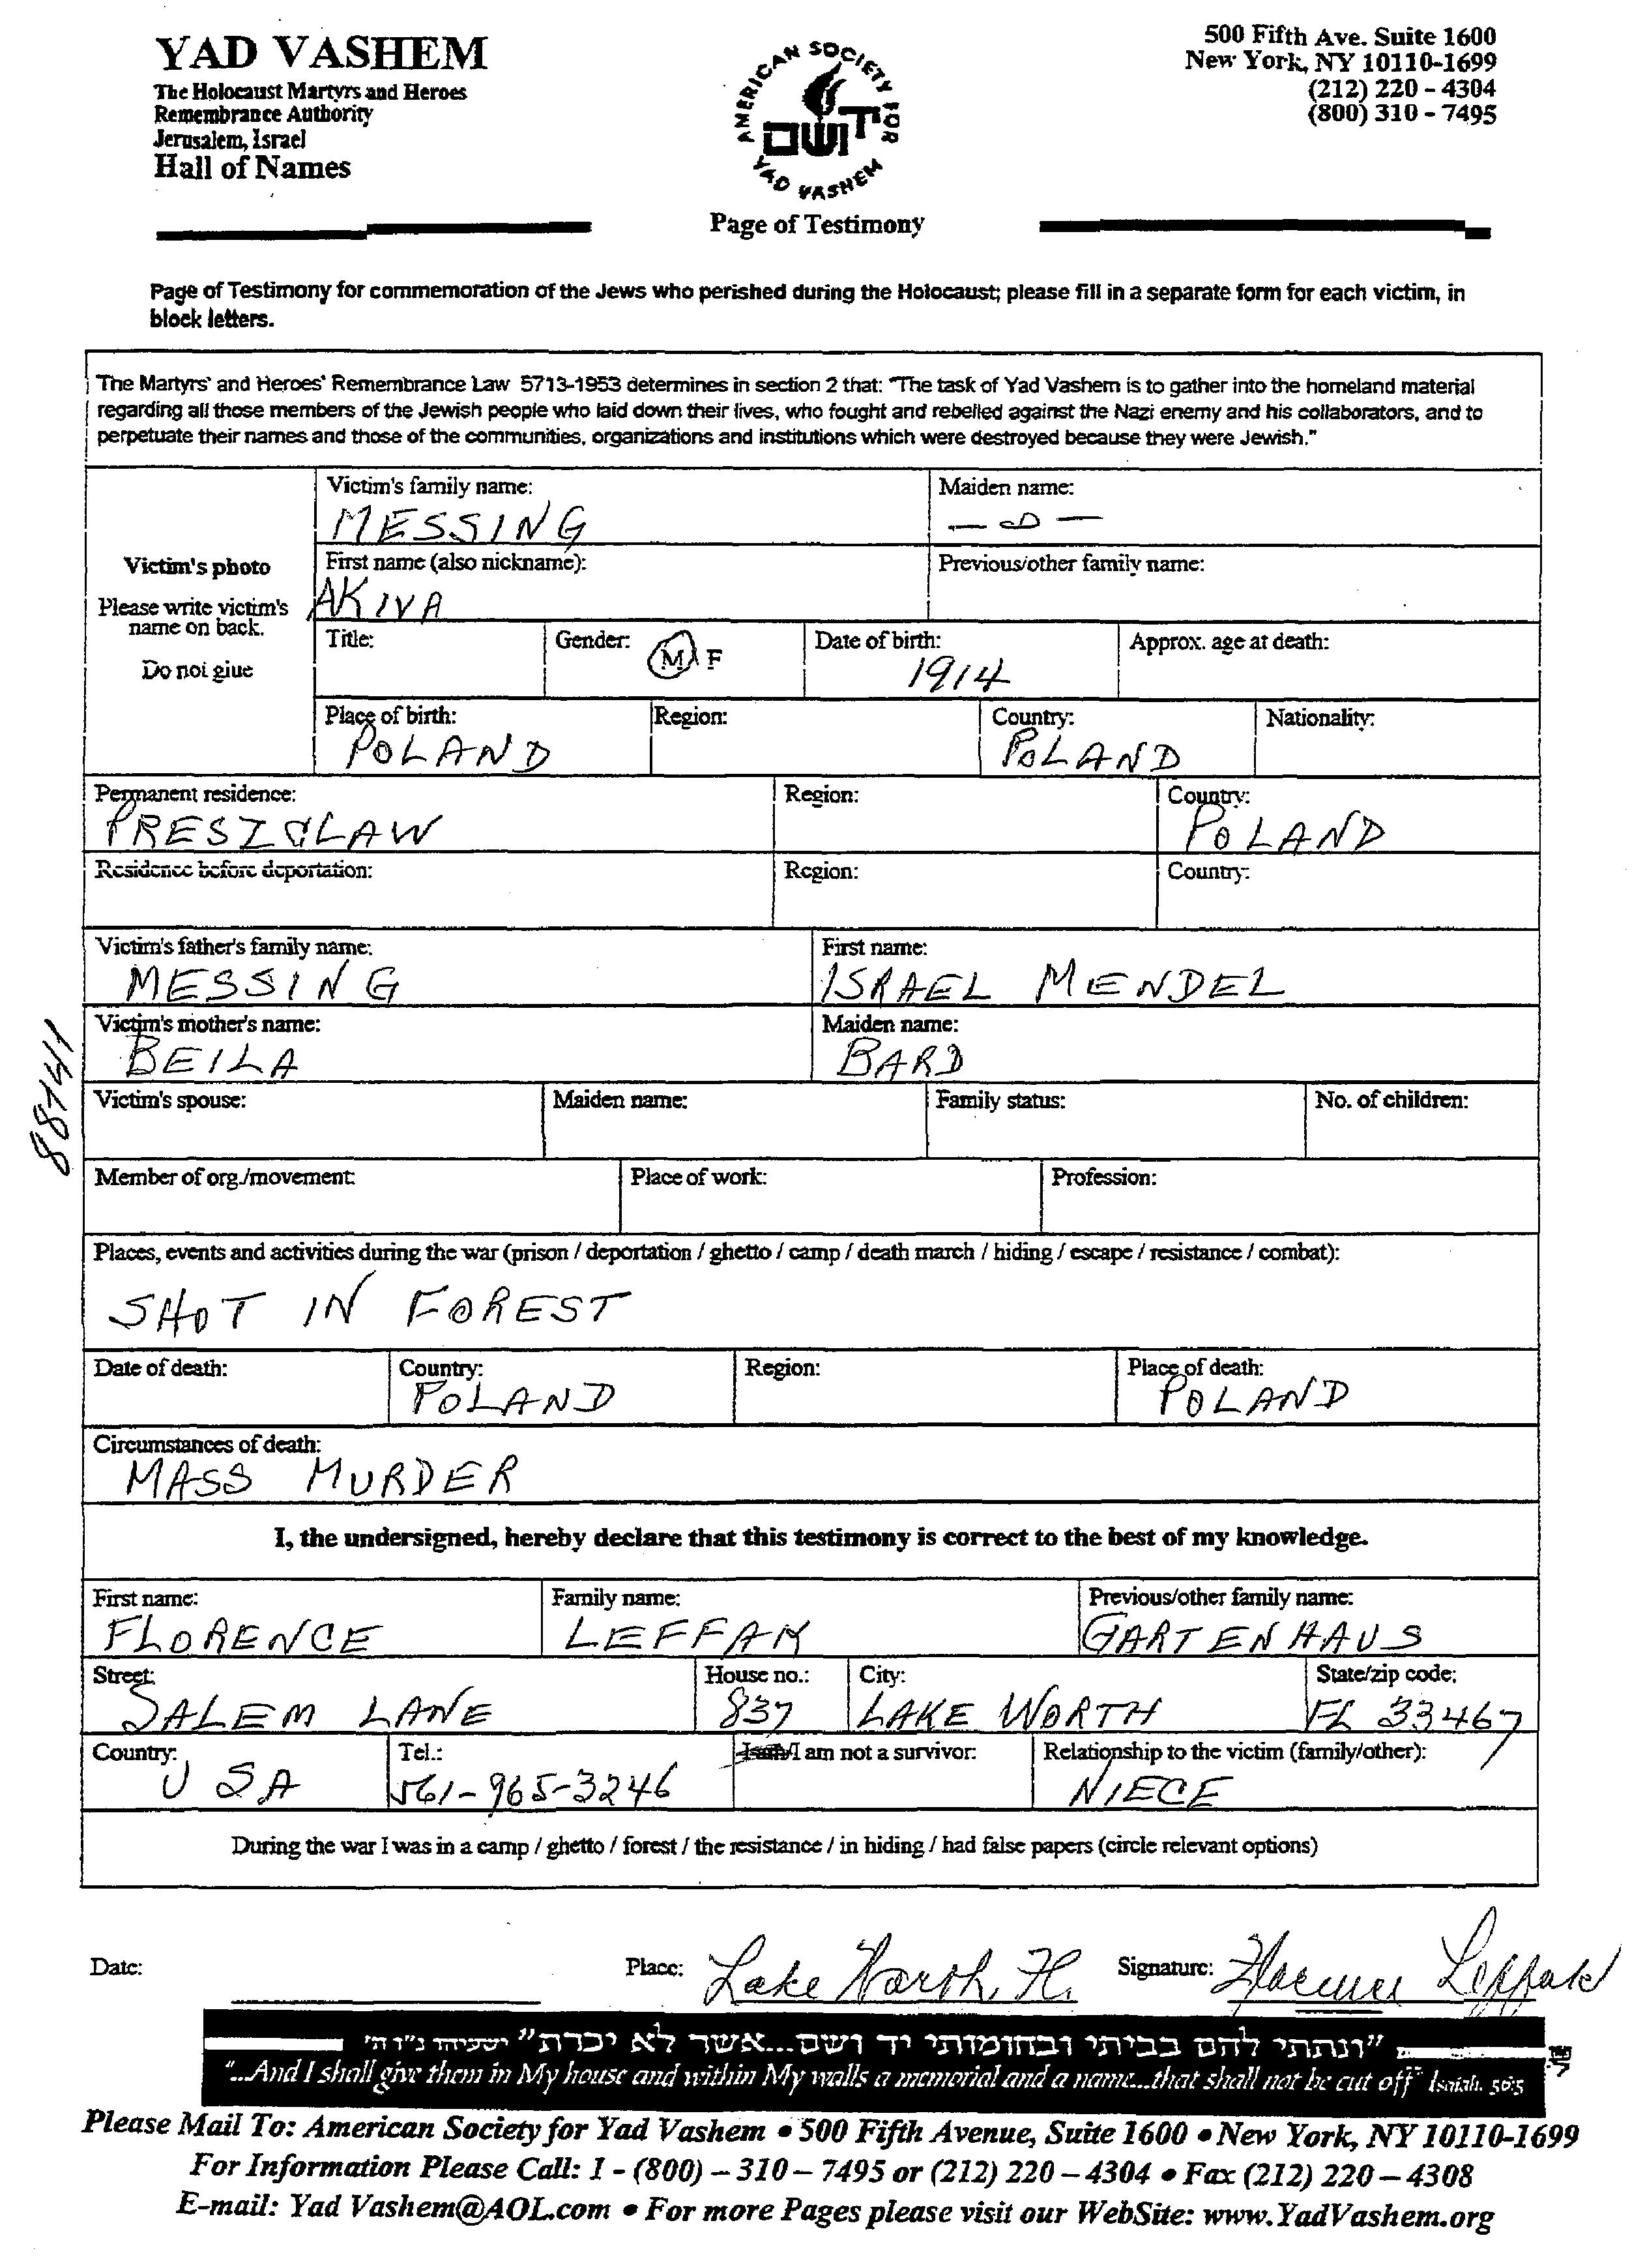 YAD VASHEM
The Holocaust Martyrs and Heroes
Remembrance Authority
Jerusalem, Israel
Hall of Names
AMERICAN SOCIETY FOR
יד ושם
YAD VASHEM
Page of Testimony
500 Fifth Ave. Suite 1600
New York, NY 10110-1699
(212) 220 - 4304
(800) 310 - 7495
Page of Testimony for commemoration of the Jews who perished during the Holocaust; please fill in a separate form for each victim, in
block letters.
The Martyrs' and Heroes' Remembrance Law 5713-1953 determines in section 2 that: "The task of Yad Vashem is to gather into the homeland material
regarding all those members of the Jewish people who laid down their lives, who fought and rebelled against the Nazi enemy and his collaborators, and to
perpetuate their names and those of the communities, organizations and institutions which were destroyed because they were Jewish."
Victim's photo
Please write victim's
name on back.
Do not glue
Victim's family name: Maiden name:
MESSING
First name (also nickname): Previous/other family name:
AKIVA
Title: Gender: M F Date of birth: Approx. age at death:
1914
Place of birth: Region: Country: Nationality:
POLAND POLAND
Permanent residence: Region: Country:
POLAND
Residence before deportation: Region: Country:
Victim's father's family name: First name:
MESSING ISRAEL MENDEL
Victim's mother's name: Maiden name:
BEILA BARD
88141
Victim's spouse: Maiden name: Family status: No. of children:
Member of org./movement: Place of work: Profession:
Places, events and activities during the war (prison / deportation / ghetto / camp / death march / hiding / escape / resistance / combat):
SHOT IN FOREST
Date of death: Country: Region: Place of death:
POLAND POLAND
Circumstances of death:
MASS MURDER
I, the undersigned, hereby declare that this testimony is correct to the best of my knowledge.
First name: Family name: Previous/other family name:
FLORENCE LEFFAK GARTENHAUS
Street: House no.: City: State/zip code:
SALEM LANE 837 LAKE WORTH FL 33467
Country: Tel.: I am not a survivor: Relationship to the victim (family/other):
USA 561-965-3246 NIECE
During the war I was in a camp / ghetto / forest / the resistance / in hiding / had false papers (circle relevant options)
Date: Place: Lake Worth, Fl. Signature: Florence Leffak
"ונתתי להם בביתי ובחומותי יד ושם...אשר לא יכרת" ישעיהו נ"ו ה'
"...And I shall give them in My house and within My walls a memorial and a name...that shall not be cut off" Isaiah. 56:5
Please Mail To: American Society for Yad Vashem • 500 Fifth Avenue, Suite 1600 • New York, NY 10110-1699
For Information Please Call: 1 - (800) – 310 – 7495 or (212) 220 – 4304 • Fax (212) 220 – 4308
E-mail: Yad Vashem@AOL.com • For more Pages please visit our WebSite: www.YadVashem.org